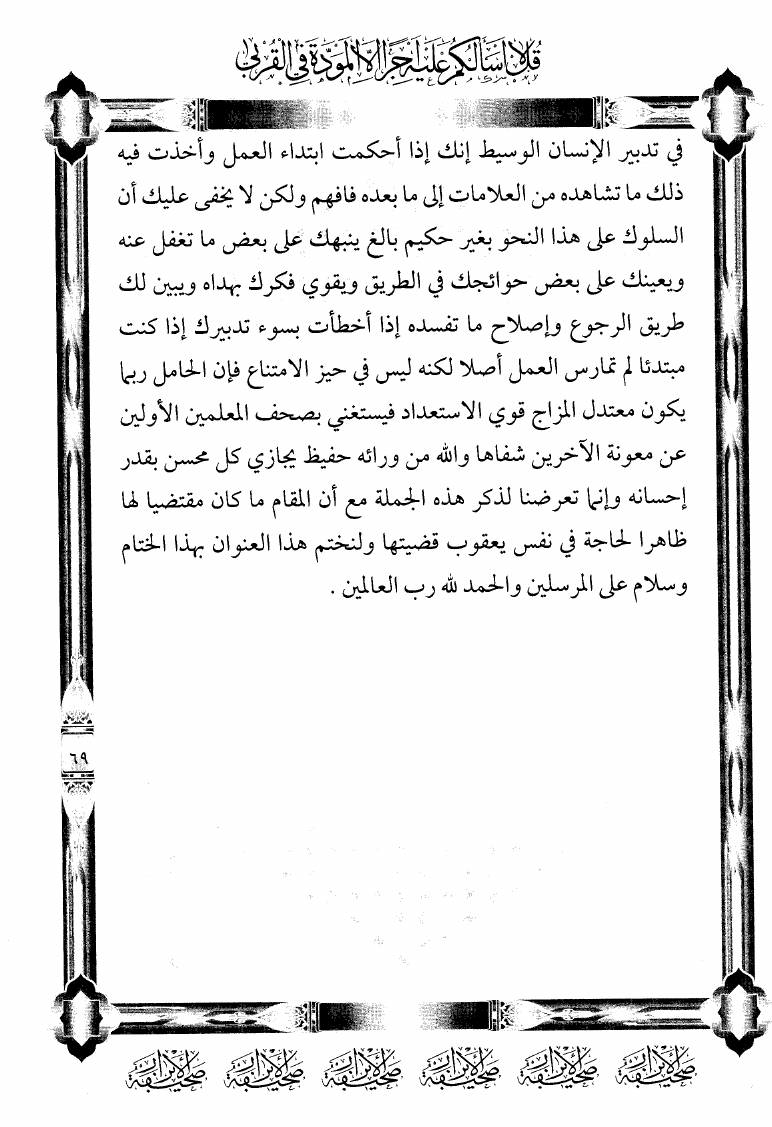 قل لا أسألكم عليه أجرا إلا المودة في القربى
في تدبير الإنسان الوسيط إنك إذا أحكمت ابتداء العمل وأخذت فيه
ذلك ما تشاهده من العلامات إلى ما بعده فافهم ولكن لا يخفى عليك أن
السلوك على هذا النحو بغير حكيم بالغ ينبهك على بعض ما تغفل عنه
ويعينك على بعض حوائجك في الطريق ويقوي فكرك بهداه ويبين لك
طريق الرجوع وإصلاح ما تفسده إذا أخطأت بسوء تدبيرك إذا كنت
مبتدئا لم تمارس العمل أصلا لكنه ليس في حيز الامتناع فإن الحامل ربما
يكون معتدل المزاج قوي الاستعداد فيستغني بصحف المعلمين الأولين
عن معونة الآخرين شفاها والله من ورائه حفيظ يجازي كل محسن بقدر
إحسانه وإنما تعرضنا لذكر هذه الجملة مع أن المقام ما كان مقتضيا لها
ظاهرا لحاجة في نفس يعقوب قضيتها ولنختم هذا العنوان بهذا الختام
وسلام على المرسلين والحمد لله رب العالمين .
٦٩
صحيفة الأبرار صحيفة الأبرار صحيفة الأبرار صحيفة الأبرار صحيفة الأبرار صحيفة الأبرار